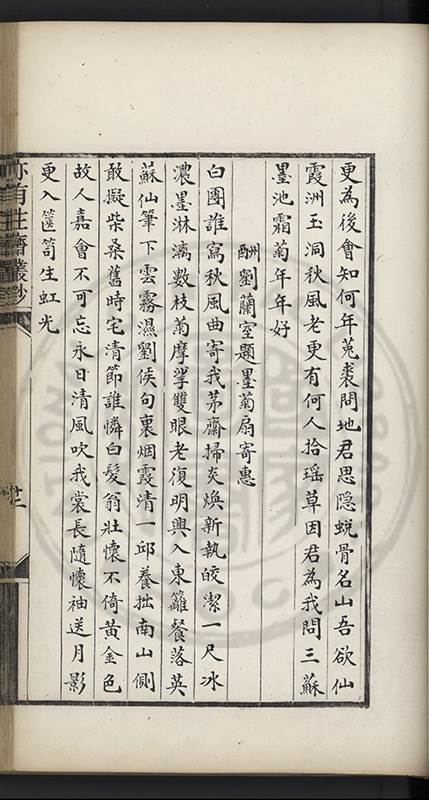 更為後會知何年菟裘問地君思隱蛻骨名山吾欲仙
霞洲玉洞秋風老更有何人拾瑶草因君為我問三蘇
墨池霜菊年年好
酬劉蘭室題墨菊扇寄惠
白團誰寫秋風曲寄我茅齋掃炎燠新執皎潔一尺冰
濃墨淋漓數枝菊摩挲雙眼老復明興入東籬餐落英
蘇仙筆下雲霧濕劉侯句裏烟霞清一邱養拙南山側
敢擬柴桑舊時宅清節誰憐白髮翁壯懷不倚黃金色
故人嘉會不可忘永日清風吹我裳長隨懷袖送月影
更入篋笥生虹光
亦有生齋叢鈔